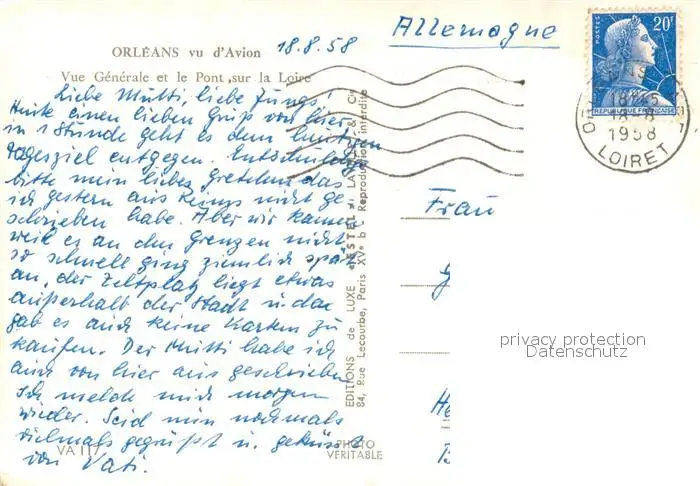 Allemagne
ORLÉANS vu d'Avion 18.8.58
Vue Générale et le Pont sur la Loire
Liebe Mutti, liebe Jungs!
Heute einen lieben Gruß von hier.
in 1 Stunde geht es dem heutigen
Tagesziel entgegen. Entschuldige
bitte mein liebes Gretchen das
ich gestern aus Reims nicht ge-
schrieben habe. Aber wir kamen
weil es an den Grenzen nicht
so schnell ging ziemlich spät
an, der Zeltplatz liegt etwas
außerhalb der Stadt u. da
gab es auch keine Karten zu
kaufen. Der Mutti habe ich
auch von hier aus geschrieben
Ich melde mich morgen
wieder. Seid nun nochmals
vielmals gegrüßt u. geküsst
von Vati.
VA 117
PHOTO
VERITABLE
EDITIONS de LUXE «ESTEL»
84, Rue Lecourbe, Paris XVe
Reproduction interdite
POSTES
20F
REPUBLIQUE FRANÇAISE
18H45
18-8
1958
LOIRET
Frau
G
He
B
privacy protection
Datenschutz